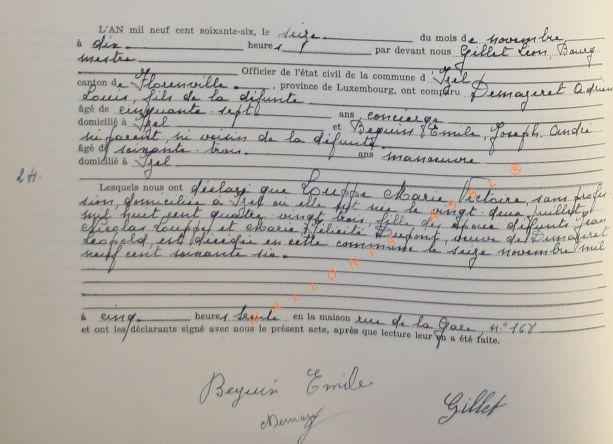 L'AN mil neuf cent soixante-six, le seize du mois de novembre
à dix heures par devant nous Gillet Léon, Bourg-
mestre
Officier de l'état civil de la commune d' Izel
canton de Florenville, province de Luxembourg, ont comparu Demazeret Adrien
Louis, fils de la défunte
âgé de cinquante-sept ans, concierge
domicilié à Izel et Bequin Emile, Joseph, André
ni parent, ni voisin de la défunte
âgé de soixante-trois ans manoeuvre
domicilié à Izel
2H.
Lesquels nous ont déclaré que Louppe Marie Victoire, sans profes-
sion, domiciliée à Izel où elle fut née le vingt-deux juillet
mil huit cent quatre-vingt trois, fille des époux défunts Jean
Nicolas Louppe et Marie Félicité Dupont, veuve de Demazeret
Léopold, est décédée en cette commune le seize novembre mil
neuf cent soixante six.
à cinq heures trente en la maison rue de la Gare, n° 168
et ont les déclarants signé avec nous le présent acte, après que lecture leur en a été faite.
WALLONIA ASBL ®
Bequin Emile
Gillet